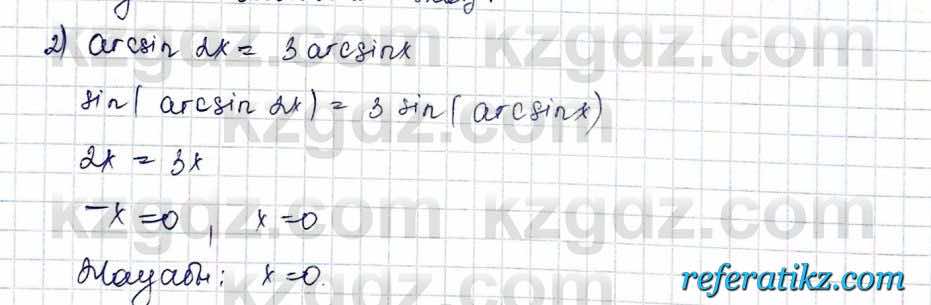 2) arcsin 2x = 3 arcsinx
sin( arcsin 2x) = 3 sin( arcsinx)
2x = 3x
-x =0, x =0
Жауабы: x =0.
kzgdz.com kzgdz.com
kzgdz.com
kzgdz.com kzgdz.com
referatikz.com